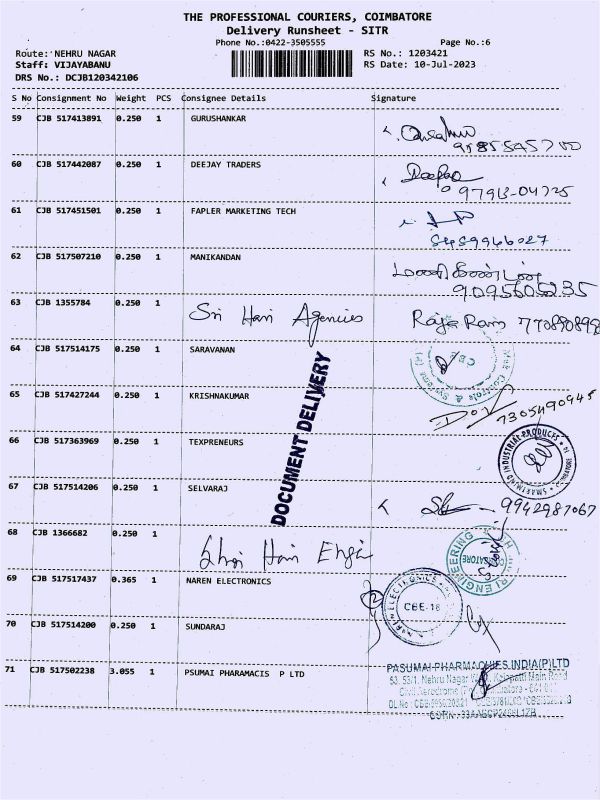 THE PROFESSIONAL COURIERS, COIMBATORE
Delivery Runsheet - SITR
Phone No.:0422-3505555 Page No.:6
Route: NEHRU NAGAR RS No.: 1203421
Staff: VIJAYABANU RS Date: 10-Jul-2023
DRS No.: DCJB120342106
S No Consignment No Weight PCS Consignee Details Signature
59 CJB 517413891 0.250 1 GURUSHANKAR
60 CJB 517442087 0.250 1 DEEJAY TRADERS Deepa
97913-04725
61 CJB 517451501 0.250 1 FAPLER MARKETING TECH
8489966027
62 CJB 517507210 0.250 1 MANIKANDAN மணிகண்டன்
9095605235
63 CJB 1355784 0.250 1 Sri Hari Agencies Raja Ram 770890898
64 CJB 517514175 0.250 1 SARAVANAN
65 CJB 517427244 0.250 1 KRISHNAKUMAR 7305490945
66 CJB 517363969 0.250 1 TEXPRENEURS
DOCUMENT DELIVERY
67 CJB 517514206 0.250 1 SELVARAJ 9942987067
68 CJB 1366682 0.250 1 Hari
69 CJB 517517437 0.365 1 NAREN ELECTRONICS
NAREN ELECTRONICS CBE-18
70 CJB 517514200 0.250 1 SUNDARAJ
71 CJB 517502238 3.055 1 PSUMAI PHARAMACIS P LTD
PASUMAI PHARMACIES INDIA(P)LTD
53, 53/1, Nehru Nagar Kalapatti Main Road